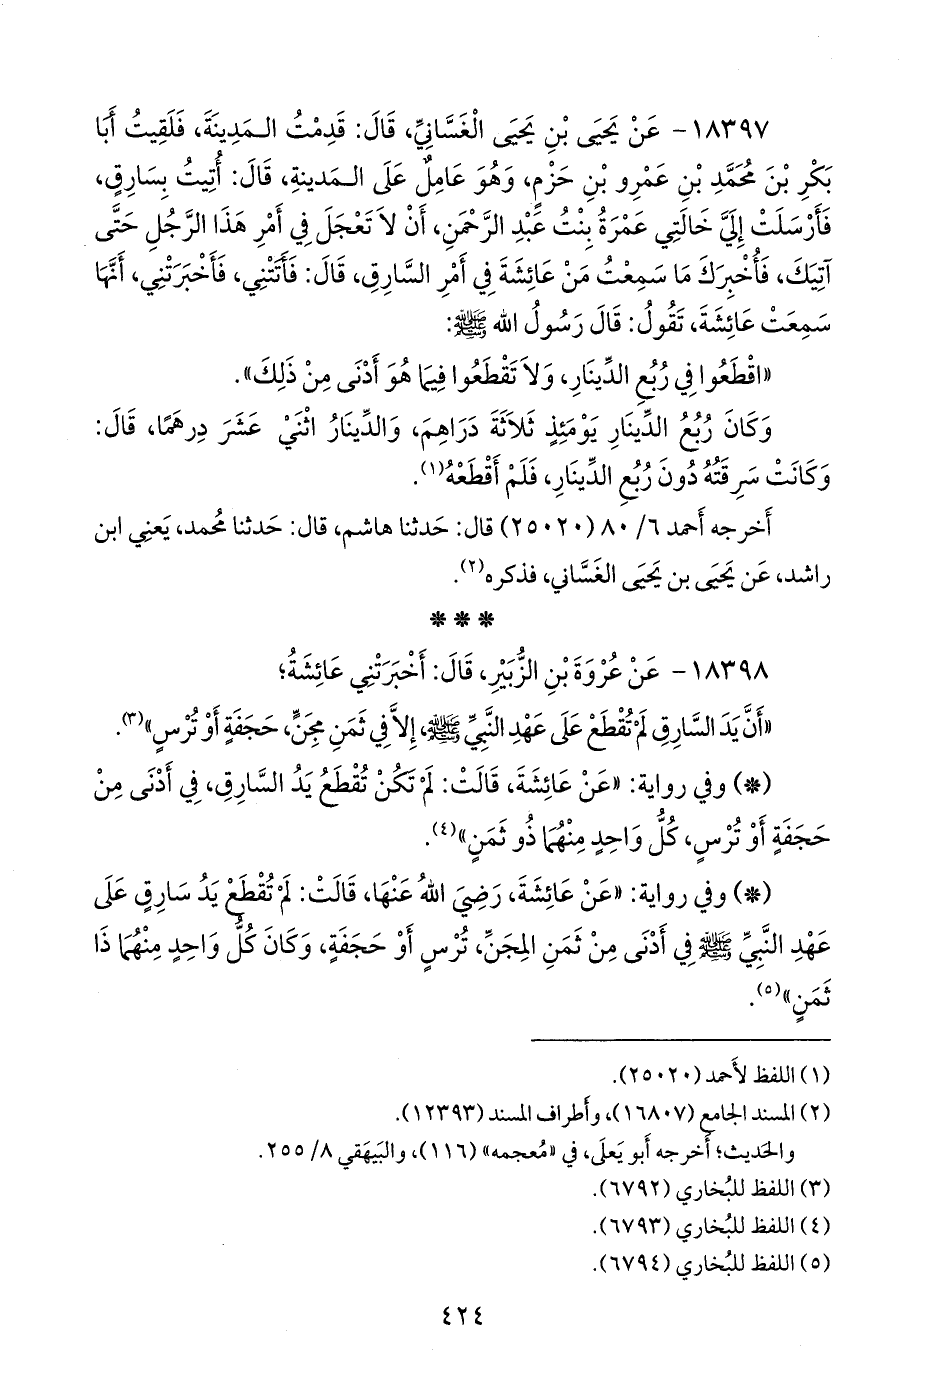 ١٨٣٩٧- عَنْ يَحيَى بْنِ يَحيَى الْغَسَّانِيِّ، قَالَ: قَدِمْتُ الـمَدِينَةَ، فَلَقِيتُ أَبَا
بَكْرِ بْنَ مُحَمَّدِ بْنِ عَمْرِو بْنِ حَزْمٍ، وَهُوَ عَامِلٌ عَلَى الـمَدينةِ، قَالَ: أُتِيتُ بِسَارِقٍ،
فَأَرْسَلَتْ إِلَيَّ خَالَتِي عَمْرَةُ بِنْتُ عَبْدِ الرَّحْمَنِ، أَنْ لاَ تَعْجَلَ فِي أَمْرِ هَذَا الرَّجُلِ حَتَّى
آتِيَكَ، فَأُخْبِرَكَ مَا سَمِعْتُ مَنْ عَائِشَةَ فِي أَمْرِ السَّارِقِ، قَالَ: فَأَتَتْنِي، فَأَخْبَرَتْنِي، أَنَّهَا
سَمِعَتْ عَائِشَةَ، تَقُولُ: قَالَ رَسُولُ الله ﷺ:
«اقْطَعُوا فِي رُبُعِ الدِّينَارِ، وَلاَ تَقْطَعُوا فِيمَا هُوَ أَدْنَى مِنْ ذَلِكَ».
وَكَانَ رُبُعُ الدِّينَارِ يَوْمَئِذٍ ثَلاَثَةَ دَرَاهِمَ، وَالدِّينَارُ اثْنَيْ عَشَرَ دِرهَمًا، قَالَ:
وَكَانَتْ سَرِقَتُهُ دُونَ رُبُعِ الدِّينَارِ، فَلَمْ أَقْطَعْهُ(١).
أَخرجه أَحمد ٦/ ٨٠ (٢٥٠٢٠) قال: حَدثنا هاشم، قال: حَدثنا مُحمد، يَعني ابن
راشد، عَن يَحيَى بن يَحيَى الغَسَّاني، فذكره(٢).
* * *
١٨٣٩٨- عَنْ عُرْوَةَ بْنِ الزُّبَيْرِ، قَالَ: أَخْبَرَتْنِي عَائِشَةُ؛
«أَنَّ يَدَ السَّارِقِ لَمْ تُقْطَعْ عَلَى عَهْدِ النَّبِيِّ ﷺ، إِلاَّ فِي ثَمَنِ مِجَنٍّ، حَجَفَةٍ أَوْ تُرْسٍ»(٣).
(*) وفي رواية: «عَنْ عَائِشَةَ، قَالَتْ: لَمْ تَكُنْ تُقْطَعُ يَدُ السَّارِقِ، فِي أَدْنَى مِنْ
حَجَفَةٍ أَوْ تُرْسٍ، كُلُّ وَاحِدٍ مِنْهُمَا ذُو ثَمَنٍ»(٤).
(*) وفي رواية: «عَنْ عَائِشَةَ، رَضِيَ اللهُ عَنْهَا، قَالَتْ: لَمْ تُقْطَعْ يَدُ سَارِقٍ عَلَى
عَهْدِ النَّبِيِّ ﷺ فِي أَدْنَى مِنْ ثَمَنِ المِجَنِّ، تُرْسٍ أَوْ حَجَفَةٍ، وَكَانَ كُلُّ وَاحِدٍ مِنْهُمَا ذَا
ثَمَنٍ»(٥).
(١) اللفظ لأَحمد (٢٥٠٢٠).
(٢) المسند الجامع (١٦٨٠٧)، وأَطراف المسند (١٢٣٩٣).
والحَديث؛ أَخرجه أَبو يَعلَى، في «مُعجمه» (١١٦)، والبَيهَقي ٨/ ٢٥٥.
(٣) اللفظ للبُخاري (٦٧٩٢).
(٤) اللفظ للبُخاري (٦٧٩٣).
(٥) اللفظ للبُخاري (٦٧٩٤).
٤٢٤